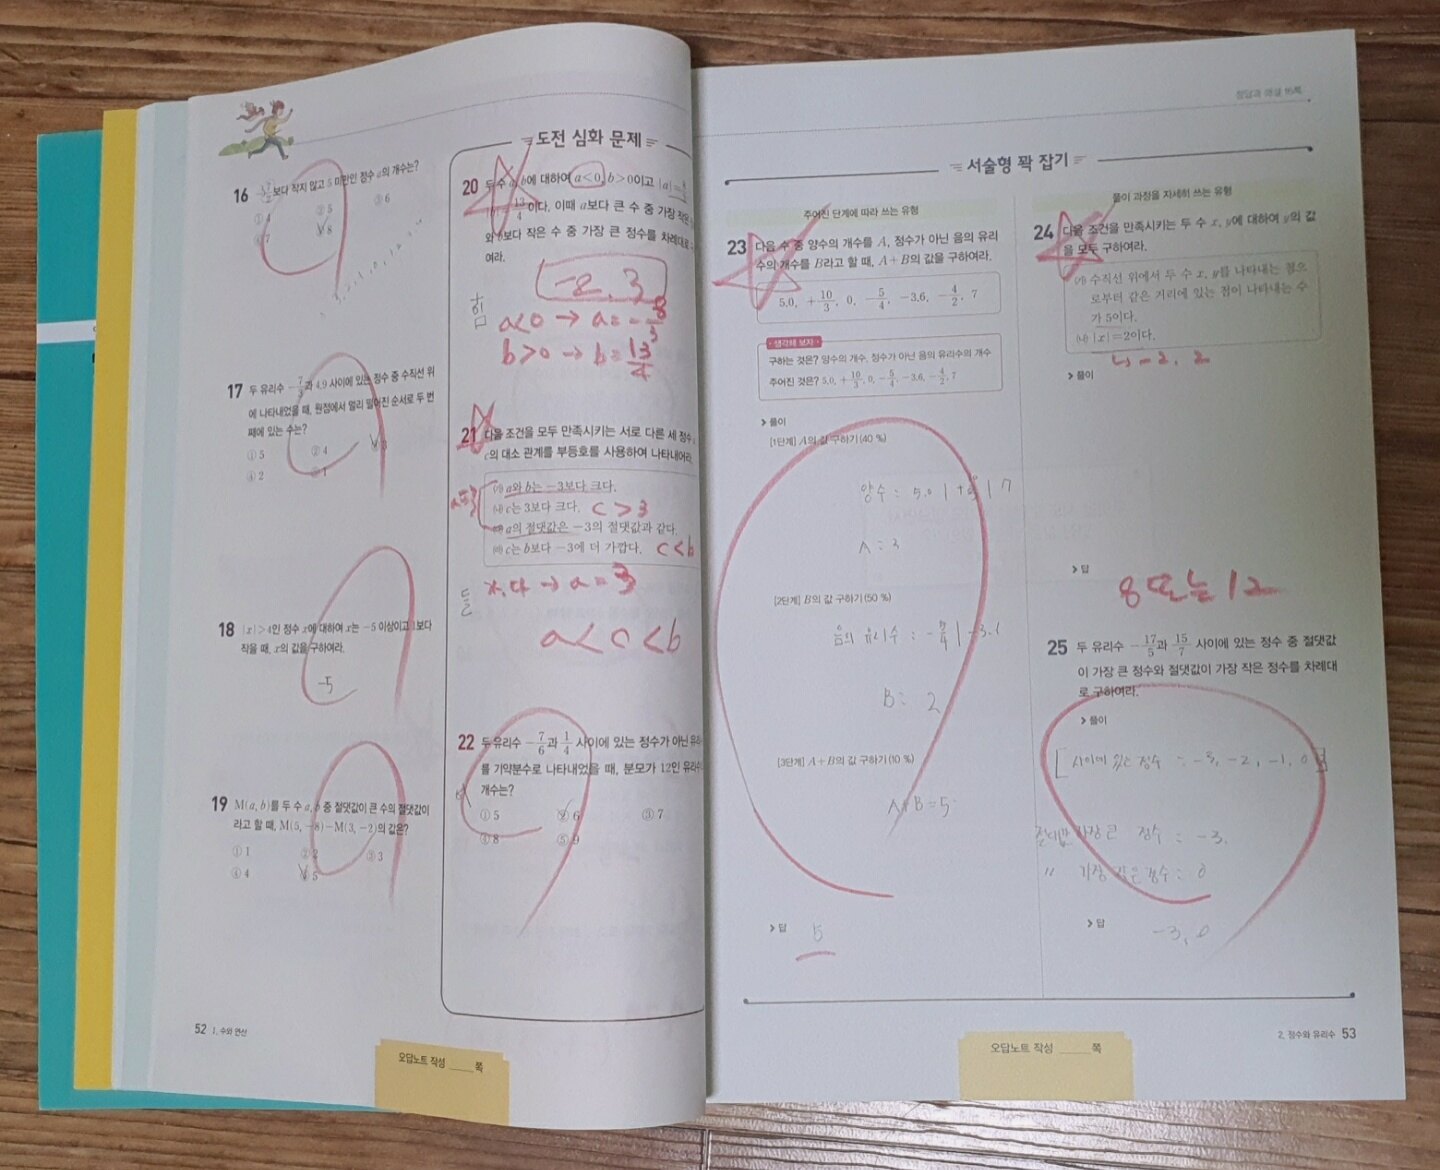 16
보다 작지 않고 5 미만인 정수 a의 개수는?
① 4 ② 5 ③ 6
④ 7 ⑤ 8
17 두 유리수 -7/3과 4.9 사이에 있는 정수 중 수직선 위
에 나타내었을 때, 원점에서 멀리 떨어진 순서로 두 번
째에 있는 수는?
① 5 ② 4 ③ 3
④ 2 ⑤ 1
18 |x|>4인 정수 x에 대하여 x는 -5 이상이고 1보다
작을 때, x의 값을 구하여라.
-5
19 M(a, b)를 두 수 a, b 중 절댓값이 큰 수의 절댓값이
라고 할 때, M(5, -8)-M(3, -2)의 값은?
① 1 ② 2 ③ 3
④ 4 ⑤ 5
52 1. 수와 연산
오답노트 작성 ____ 쪽
도전 심화 문제
20 두 수 a, b에 대하여 a<0, b>0이고 |a|=
13/4이다. 이때 a보다 큰 수 중 가장 작은
와 b보다 작은 수 중 가장 큰 정수를 차례대로
여라.
-2, 3
힘
a<0 → a=-8/3
b>0 → b=13/4
21 다음 조건을 모두 만족시키는 서로 다른 세 정수
c의 대소 관계를 부등호를 사용하여 나타내어라.
㈎ a와 b는 -3보다 크다.
㈏ c는 3보다 크다. c>3
㈐ a의 절댓값은 -3의 절댓값과 같다.
㈑ c는 b보다 -3에 더 가깝다. c<b
→ a=3
a<c<b
22 두 유리수 -7/6과 1/4 사이에 있는 정수가 아닌
를 기약분수로 나타내었을 때, 분모가 12인
개수는?
① 5 ② 6 ③ 7
④ 8 ⑤ 9
정답과 해설
서술형 꽉 잡기
주어진 단계에 따라 쓰는 유형
23 다음 수 중 양수의 개수를 A, 정수가 아닌 음의 유리
수의 개수를 B라고 할 때, A+B의 값을 구하여라.
5.0, +10/3, 0, -5/4, -3.6, -4/2, 7
생각해 보자
구하는 것은? 양수의 개수, 정수가 아닌 음의 유리수의 개수
주어진 것은? 5.0, +10/3, 0, -5/4, -3.6, -4/2, 7
> 풀이
[1단계] A의 값 구하기 (40 %)
양수 : 5.0 | | 7
A = 3
[2단계] B의 값 구하기 (50 %)
음의 유리수 : -5/4 | -3.6
B = 2
[3단계] A+B의 값 구하기 (10 %)
A+B=5
> 답 5
오답노트 작성 ____ 쪽
풀이 과정을 자세히 쓰는 유형
24 다음 조건을 만족시키는 두 수 x, y에 대하여 y의 값
을 모두 구하여라.
㈎ 수직선 위에서 두 수 x, y를 나타내는 점으
로부터 같은 거리에 있는 점이 나타내는 수
가 5이다.
㈏ |x|=2이다.
↳ -2, 2
> 풀이
> 답
8 또는 12
25 두 유리수 -17/5과 15/7 사이에 있는 정수 중 절댓값
이 가장 큰 정수와 절댓값이 가장 작은 정수를 차례대
로 구하여라.
> 풀이
사이에 있는 정수 : -3, -2, -1, 0
절댓값 가장 큰 정수 : -3.
〃 가장 작은 정수 : 0
> 답 -3, 0
2. 정수와 유리수 53